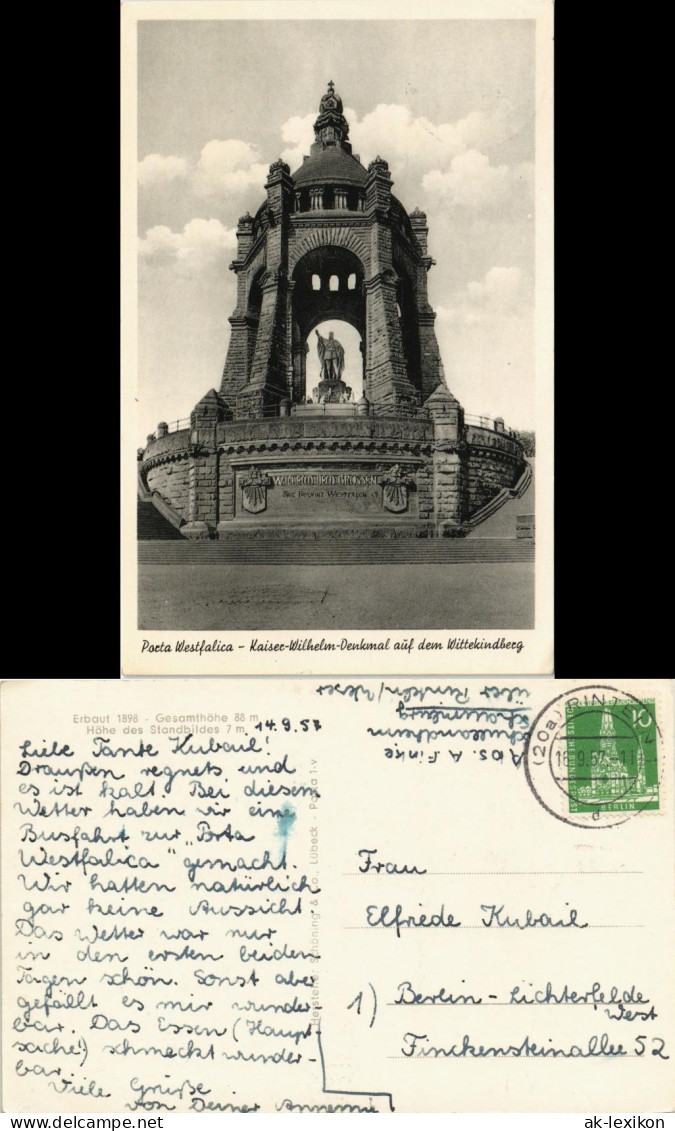 WILHELM DEM GROSSEN
Die Provinz Westfalen
Porta Westfalica - Kaiser-Wilhelm-Denkmal auf dem Wittekindberg
Erbaut 1898 - Gesamthöhe 88 m
Höhe des Standbildes 7 m
14.9.57
Liebe Tante Kubail!
Draußen regnets und
es ist kalt. Bei diesem
Wetter haben wir eine
Busfahrt zur "Porta
Westfalica" gemacht.
Wir hatten natürlich
gar keine Aussicht.
Das Wetter war nur
in den ersten beiden
Tagen schön. Sonst aber
gefällt es mir wunder
bar. Das Essen (Haupt-
sache!) schmeckt wunder-
bar.
Viele Grüße
von Deiner Annemie
Hersteller: Schöning & Co., Lübeck
Abs. A. Finke
Schaumburg
über Rinteln/Weser
(20a) RINTELN
16.9.57
d
10
BERLIN
Frau
Elfriede Kubail
1) Berlin-Lichterfelde
West
Finckensteinallee 52
ak-lexikon